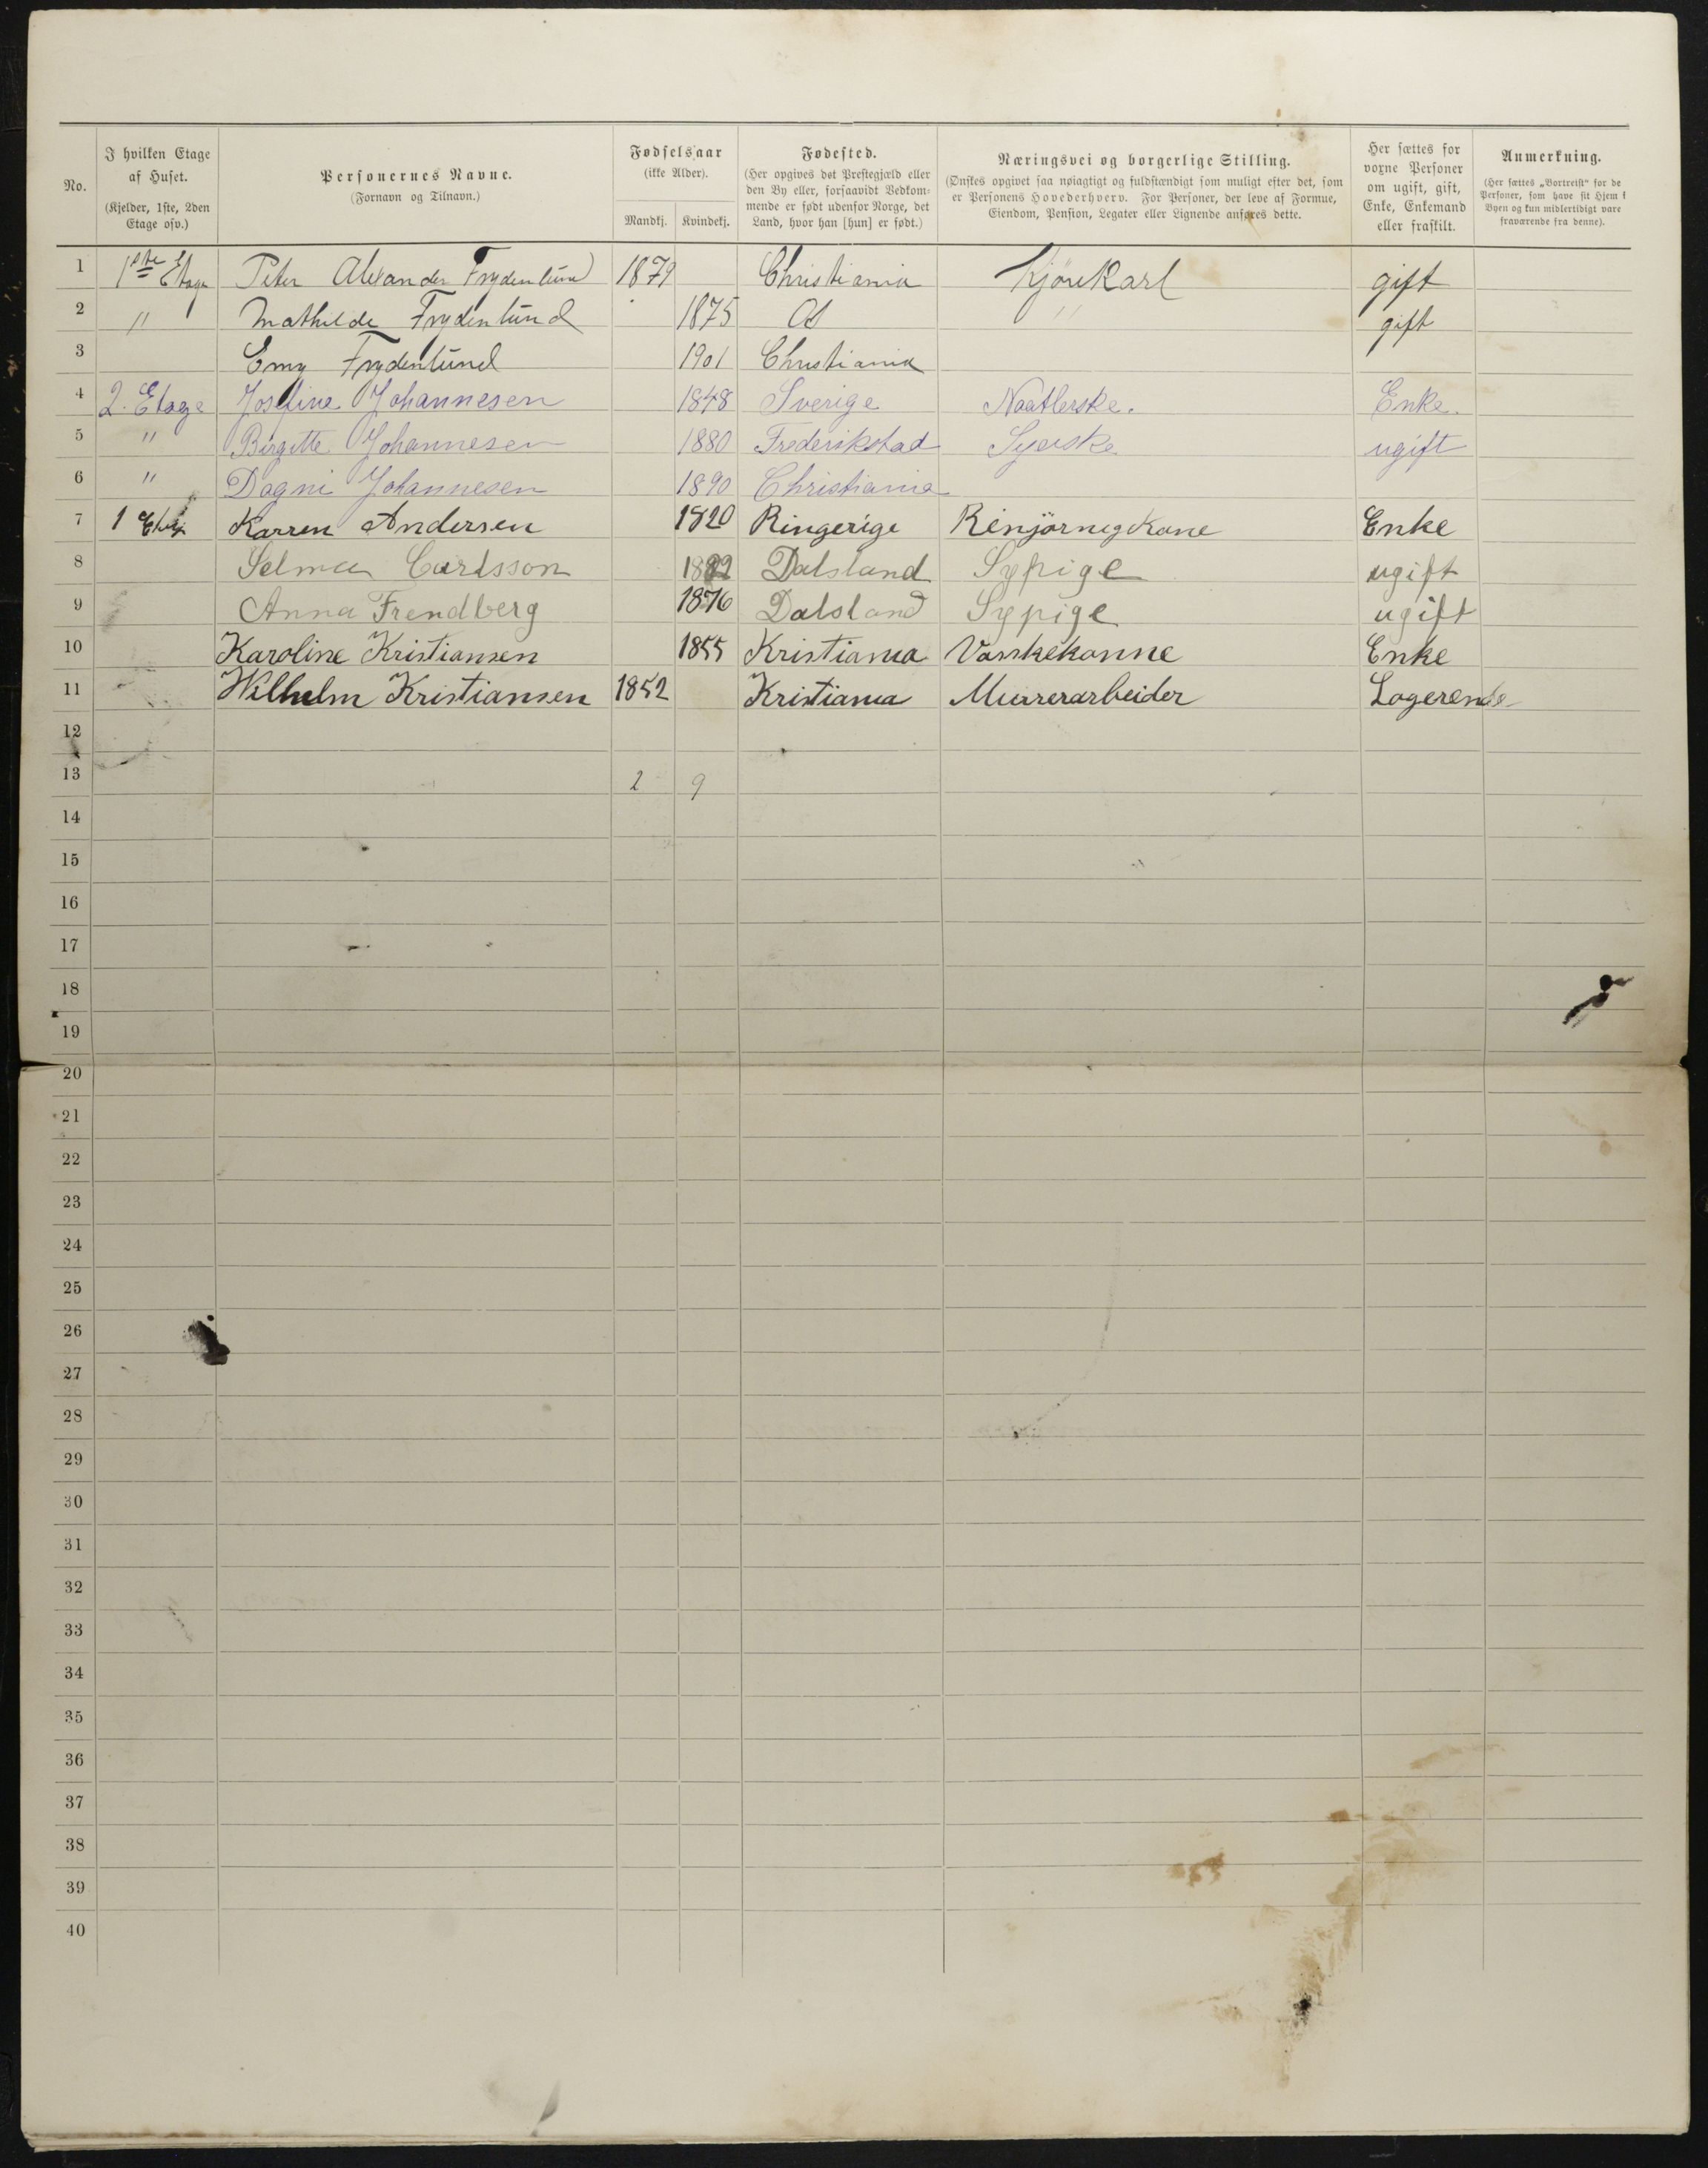 No.
I hvilken Etage af Huset. (Kjelder, 1ste, 2den Etage osv.)
Personernes Navne. (Fornavn og Tilnavn.)
Fødselsaar (ikke Alder). Mandkj. Kvindekj.
Fødested. (Her opgives det Præstegjæld eller den By eller, forsaavidt Vedkommende er født udenfor Norge, det Land, hvor han [hun] er født.)
Næringsvei og borgerlige Stilling. (Ønskes opgivet saa nøiagtigt og fuldstændigt som muligt efter det, som er Personens Hovederhverv. For Personer, der leve af Formue, Eiendom, Pension, Legater eller Lignende anføres dette.
Her sættes for voxne Personer om ugift, gift, Enke, Enkemand eller fraskilt.
Anmerkning. (Her sættes „Bortreist“ for de Personer, som have sit Hjem i Byen og kun midlertidigt være fraværende fra denne).
1 1ste Etage Peter Alexander Frydenlund 1879 Christiania Kjörekarl gift
2 " Mathilde Frydenlund 1875 Ås " gift
3 Emy Frydenlund 1901 Christiania
4 2. Etage Josefine Johannesen 1848 Sverige Naatlerske. Enke.
5 " Birgitte Johannesen 1880 Frederikstad Syerske ugift
6 " Dagni Johannesen 1890 Christiania
7 1 Etag Karren Andersen 1820 Ringerige Renjörnigkone Enke
8 Selma Carlsson 1882 Dalsland Sypige ugift
9 Anna Frendberg 1876 Dalsland Sypige ugift
10 Karoline Kristiansen 1855 Kristiania Vaskekonne Enke
11 Wilhelm Kristiansen 1852 Kristiania Murrerarbeider Logerende
12
13 2 9
14
15
16
17
18
19
20
21
22
23
24
25
26
27
28
29
30
31
32
33
34
35
36
37
38
39
40